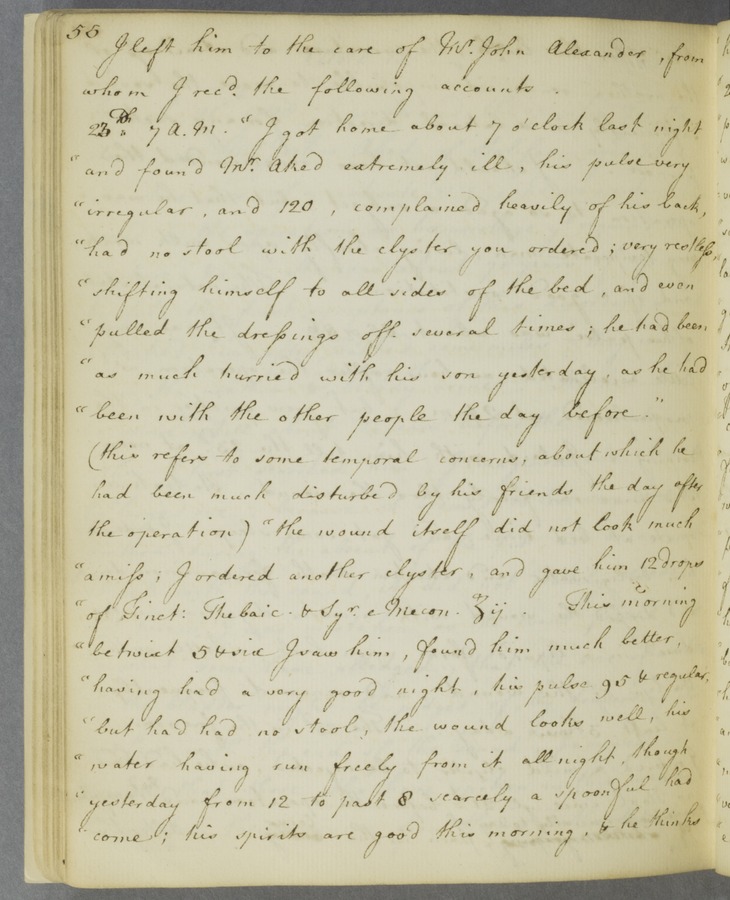 55
I left him to the care of Mr. John Alexander, from
whom I rec'd. the following accounts.
23d.. 7 A.M. "I got home about 7 o'clock last night
"and found Mr. Aked extremely ill, his pulse very
"irregular, and 120, complained heavily of his back,
"had no stool with the clyster you ordered; very restless,
"shifting himself to all sides of the bed, and even
"pulled the dressings off several times; he had been
"as much hurried with his son yesterday, as he had
"been with the other people the day before."
(this refers to some temporal concerns, about which he
had been much disturbed by his friends the day after
the operation) "the wound itself did not look much
"amiss; I ordered another clyster, and gave him 12 drops
"of Tinct: Thebaic. & Syr. e Mecon. ʒij. This morning
"betwixt 5 & six I saw him, found him much better,
"having had a very good night, his pulse 95 & regular,
"but had had no stool, the wound looks well, his
"water having run freely from it all night, though
"yesterday from 12 to past 8 scarcely a spoonful had
"come; his spirits are good this morning, & he thinks